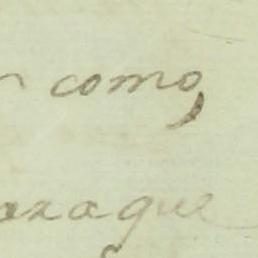 como,
araque